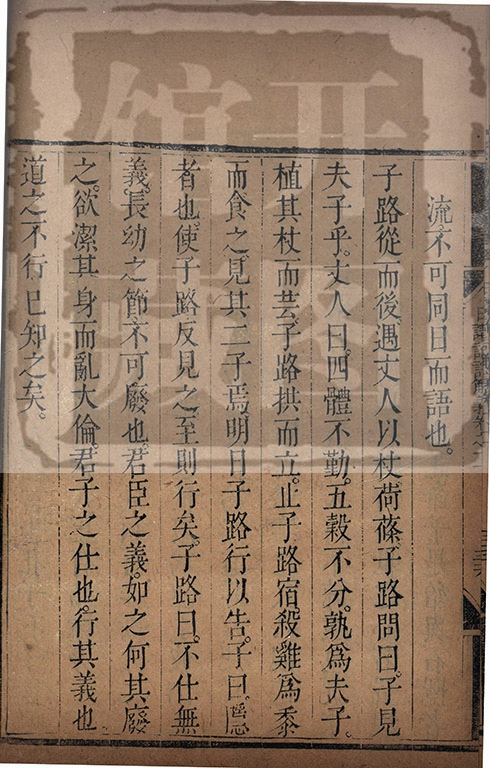 流不可同日而語也。
子路從而後遇丈人以杖荷蓧子路問曰子見
夫子乎。丈人曰。四體不勤。五穀不分。孰爲夫子。
植其杖而芸。子路拱而立。止子路宿。殺雞爲黍
而食之。見其二子焉。明日子路行以告。子曰。隱
者也。使子路反見之。至則行矣。子路曰。不仕無
義。長幼之節。不可廢也。君臣之義。如之何其廢
之。欲潔其身而亂大倫。君子之仕也。行其義也。
道之不行。已知之矣。
開
館
圖
藏